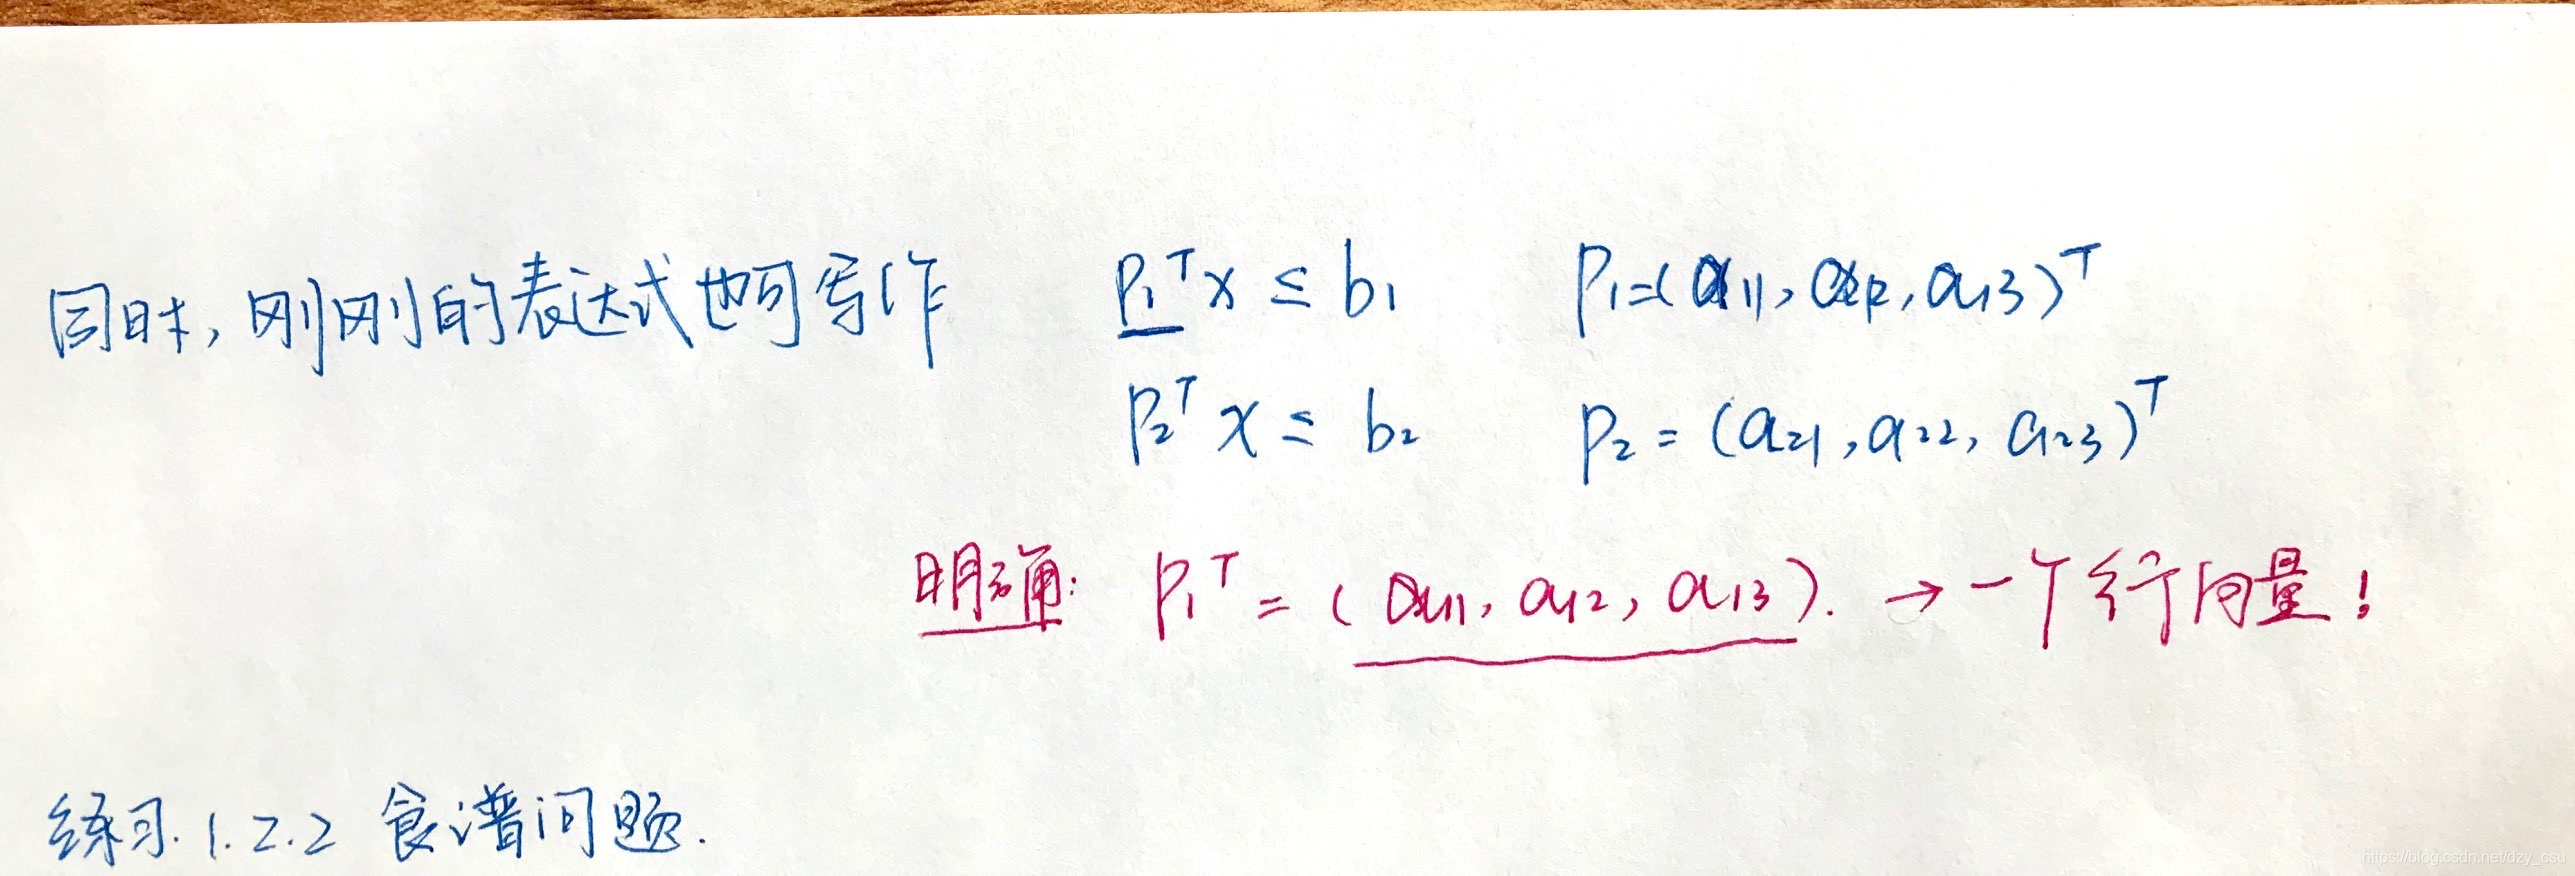 同时,刚刚的表达式也可写作 P₁ᵀx ≤ b₁ P₁=(a₁₁, a₁₂, a₁₃)ᵀ
P₂ᵀx ≤ b₂ P₂ = (a₂₁, a₂₂, a₂₃)ᵀ
明确: P₁ᵀ = (a₁₁, a₁₂, a₁₃). → 一个行向量!
练习.1.2.2 食谱问题.
https://blog.csdn.net/dzy_csu